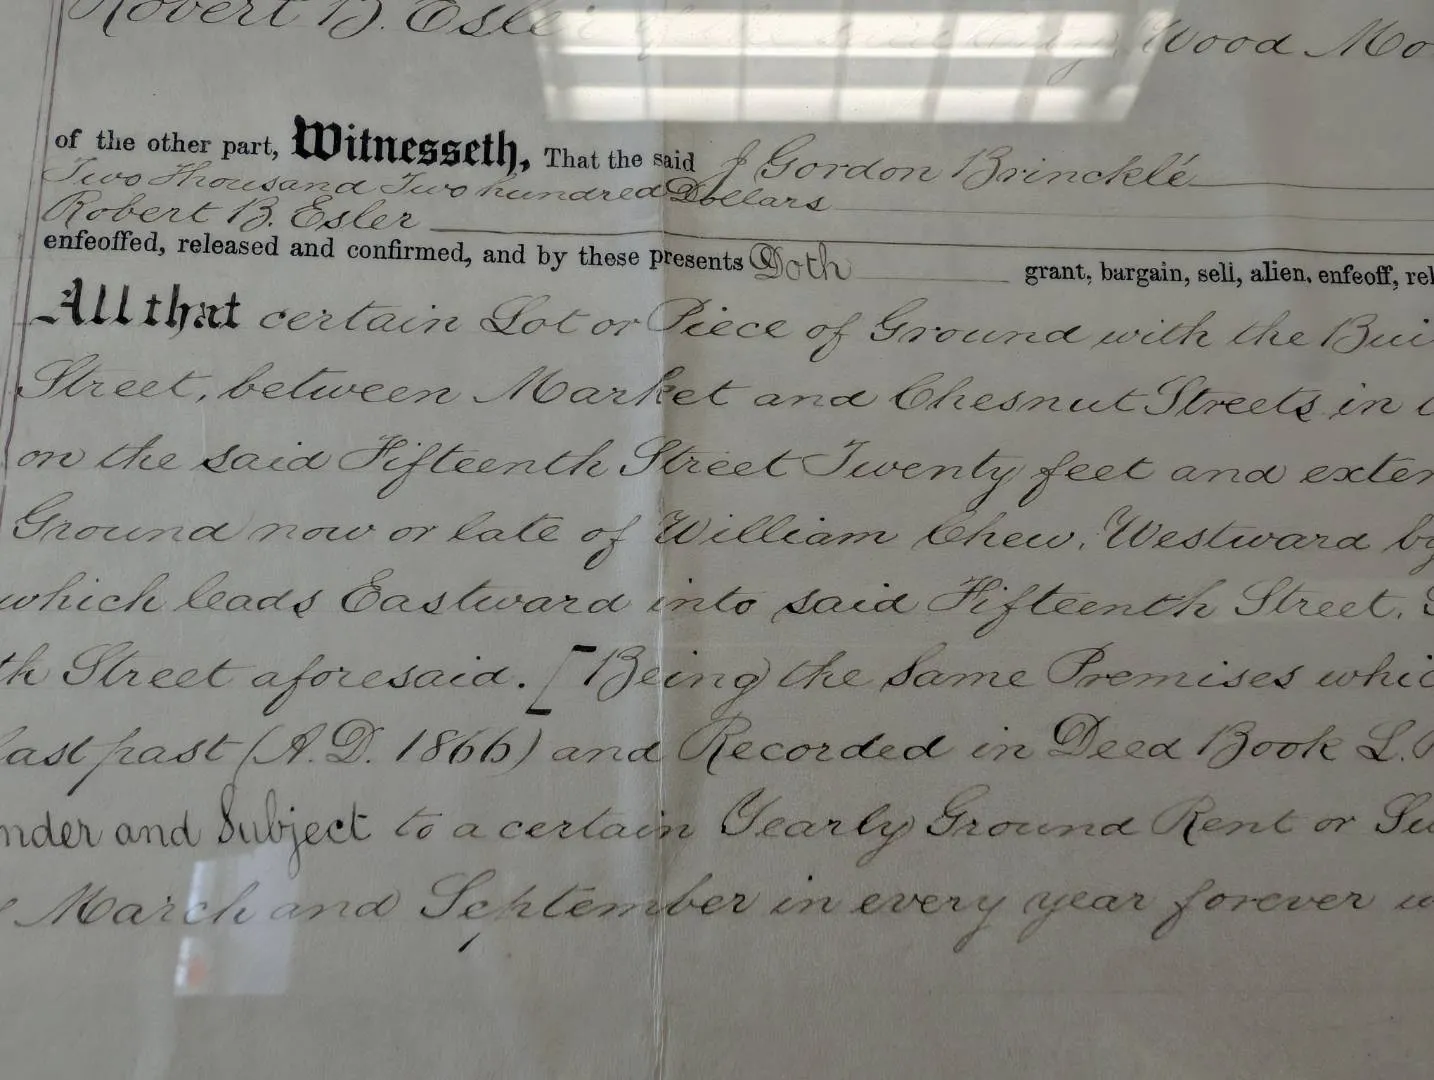 Robert B. Esler of the said City, Wood Mo
of the other part, Witnesseth, That the said J Gordon Brincklé
Two Thousand Two hundred Dollars
Robert B. Esler
enfeoffed, released and confirmed, and by these presents Doth grant, bargain, sell, alien, enfeoff, rel
All that certain Lot or Piece of Ground with the Bui
Street, between Market and Chesnut Streets in t
on the said Fifteenth Street Twenty feet and exten
Ground now or late of William Chew, Westward by
which leads Eastward into said Fifteenth Street,
th Street aforesaid. [Being the same Premises whic
last past (A.D. 1866) and Recorded in Deed Book L.
nder and Subject to a certain Yearly Ground Rent or Su
March and September in every year forever w